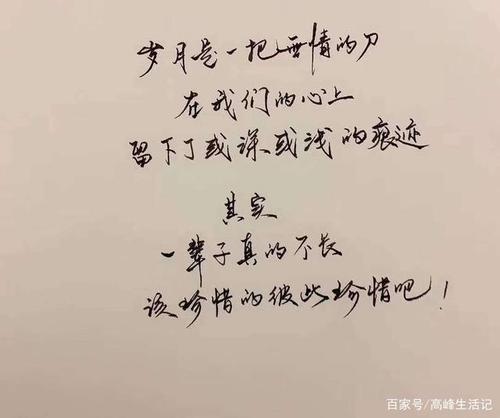 岁月是一把无情的刀
在我们的心上
留下了或深或浅的痕迹
其实
一辈子真的不长
该珍惜的彼此珍惜吧！
百家号/高峰生活记